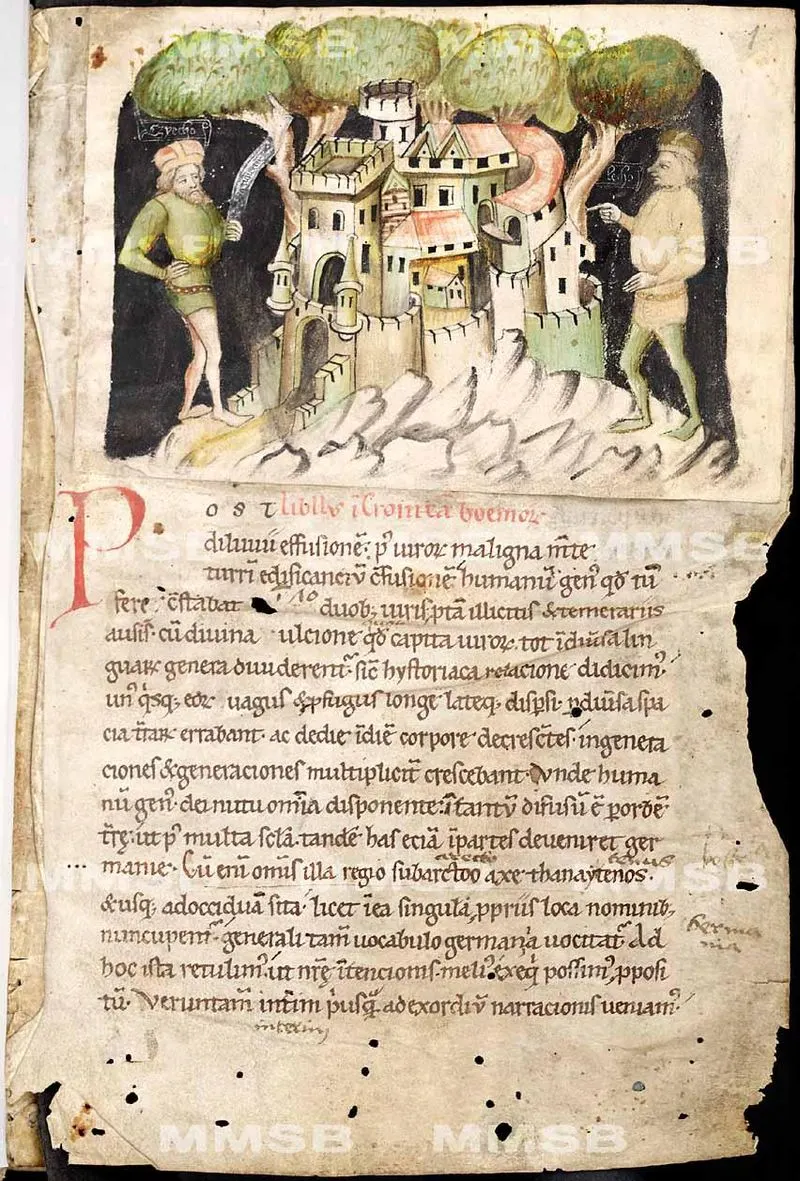 MMSB
1
Czecho
Lecho
MMSB
Incipit libll' i Cronicā boemoꝝ
Post
diluuii effusionē: p' uiroꝝ maligna mēte
turrī edificanciū ɔfusionē humanū gen' qđ tū
fere ɔstabat duob; uiris, ꝑ tā illicitis & temerariis
ausis: cū diuina ulcione qđ capita uiroꝝ tot ī diūsa lin
guaꝝ genera diuiderent'. sic̄ hystoriaca relacione didicim'
un' q̇sq; eoꝝ uagus & ꝓfugus longe lateq; disp̄si ꝑ diūsa spa
cia t̄raꝝ errabant. ac de die ī diē corpore decresc̄tes. in genera
ciones & generaciones multiplicit̄ crescebant. Vnde huma
nū gen' dei nutu omīa disponente: ī tantū difusū ē ꝑ orbē
t̄rę. ut p' multa scl̄a. tandē has eciā ī partes deueniret ger
manie. Cū enī omīs illa regio sub arctoo axe thanaytenus
& usq; ad occiduā sita. licet ī ea singula ꝓpriis loca nominib;
nuncupent'. generali tam̄ uocabulo germania uocitat'. Ad
hoc ista retulim'. ut nr̄ę ītencionis meli' exeq̇ possim' ꝓposi
tū. Veruntam̄ int̄im p̓usq̄ ad exordiū narracionis ueniam'.
interim
Germa
nia
MMSB MMSB